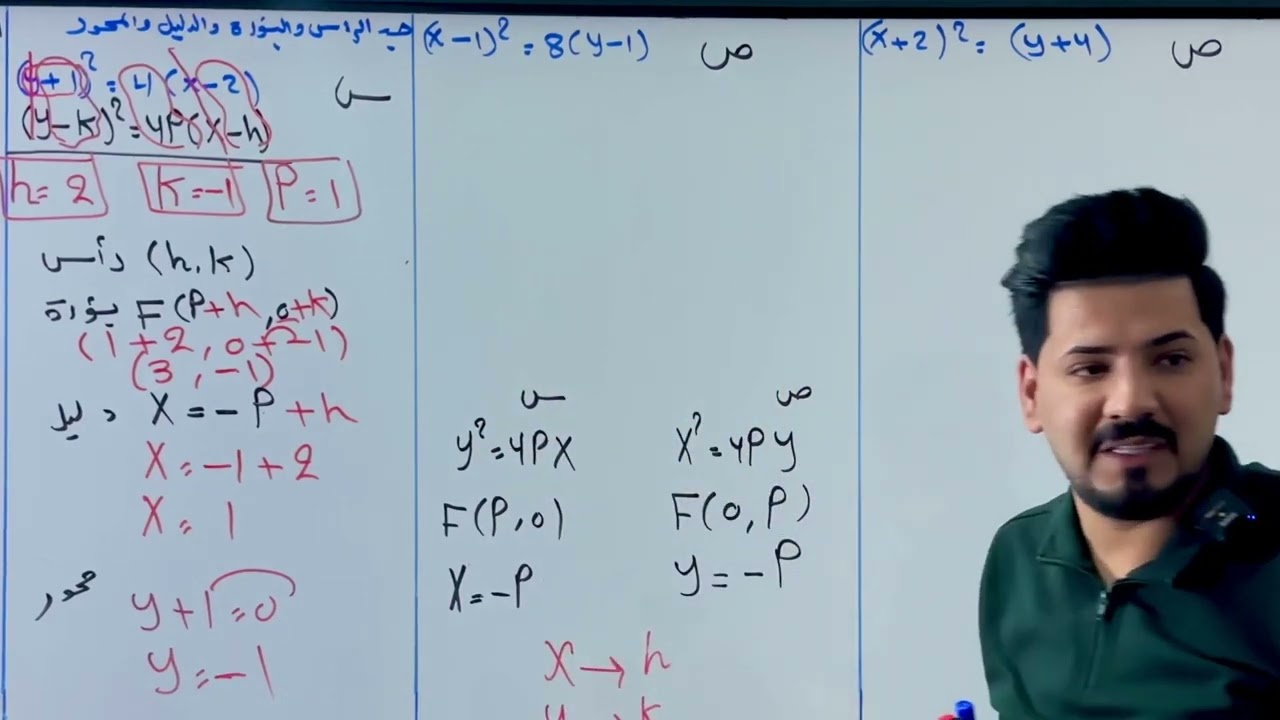 جد الرأس والبؤرة والدليل والمحور
(y+1)² = 4(x-2) س
(y-k)² = 4P(x-h)
h=2 k=-1 P=1
رأس (h,k)
بؤرة F(P+h,0+k)
(1+2,0+-1)
(3,-1)
دليل X=-P+h
X=-1+2
X=1
محور y+1=0
y=-1
(x-1)² = 8(y-1) ص
س ص
y²=4PX X²=4Py
F(P,0) F(0,P)
X=-P y=-P
X→h
y→k
(x+2)² = (y+4) ص